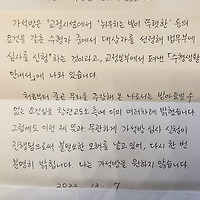 가석방은 "교정시설에서 '뉘우치는 빛이 뚜렷한' 등의
요건을 갖춘 수형자 중에서 대상자를 선정해 법무부에
심사를 신청"하는 것이라고, 교정본부에서 펴낸 「수형생활
안내서」에 나와 있습니다.
처음부터 줄곧 무죄를 주장해 온 나로서는 받아들일 수
없는 요건임을 창원교도소 측에 이미 여러차례 밝혔습니다.
그럼에도 이런 제 뜻과 무관하게 가석방 심사 신청이
진행됨으로써 불필요한 오해를 낳고 있어, 다시 한 번
분명히 밝힙니다. 나는 가석방을 원하지 않습니다.
2022. 12. 7